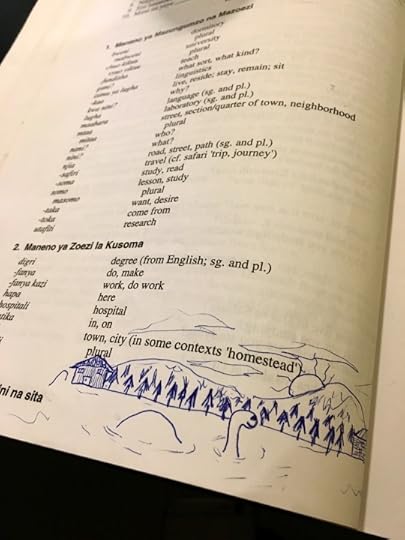 1. Maneno ya Mazungumzo na Mazoezi
bweni dormitory
mabweni plural
chuo kikuu university
vyuo vikuu plural
-fundisha teach
gani? what sort, what kind?
isimu ya lugha linguistics
-kaa live, reside; stay, remain; sit
kwa nini? why?
lugha language (sg. and pl.)
maabara laboratory (sg. and pl.)
mtaa street, section/quarter of town, neighborhood
mitaa plural
nani? who?
nini? what?
njia road, street, path (sg. and pl.)
-safiri travel (cf. safari 'trip, journey')
-soma study, read
somo lesson, study
masomo plural
-taka want, desire
-toka come from
utafiti research
2. Maneno ya Zoezi la Kusoma
digri degree (from English; sg. and pl.)
-fanya do, make
-fanya kazi work, do work
hapa here
hospitali hospital
atika in, on
i town, city (in some contexts 'homestead')
plural
ini na sita